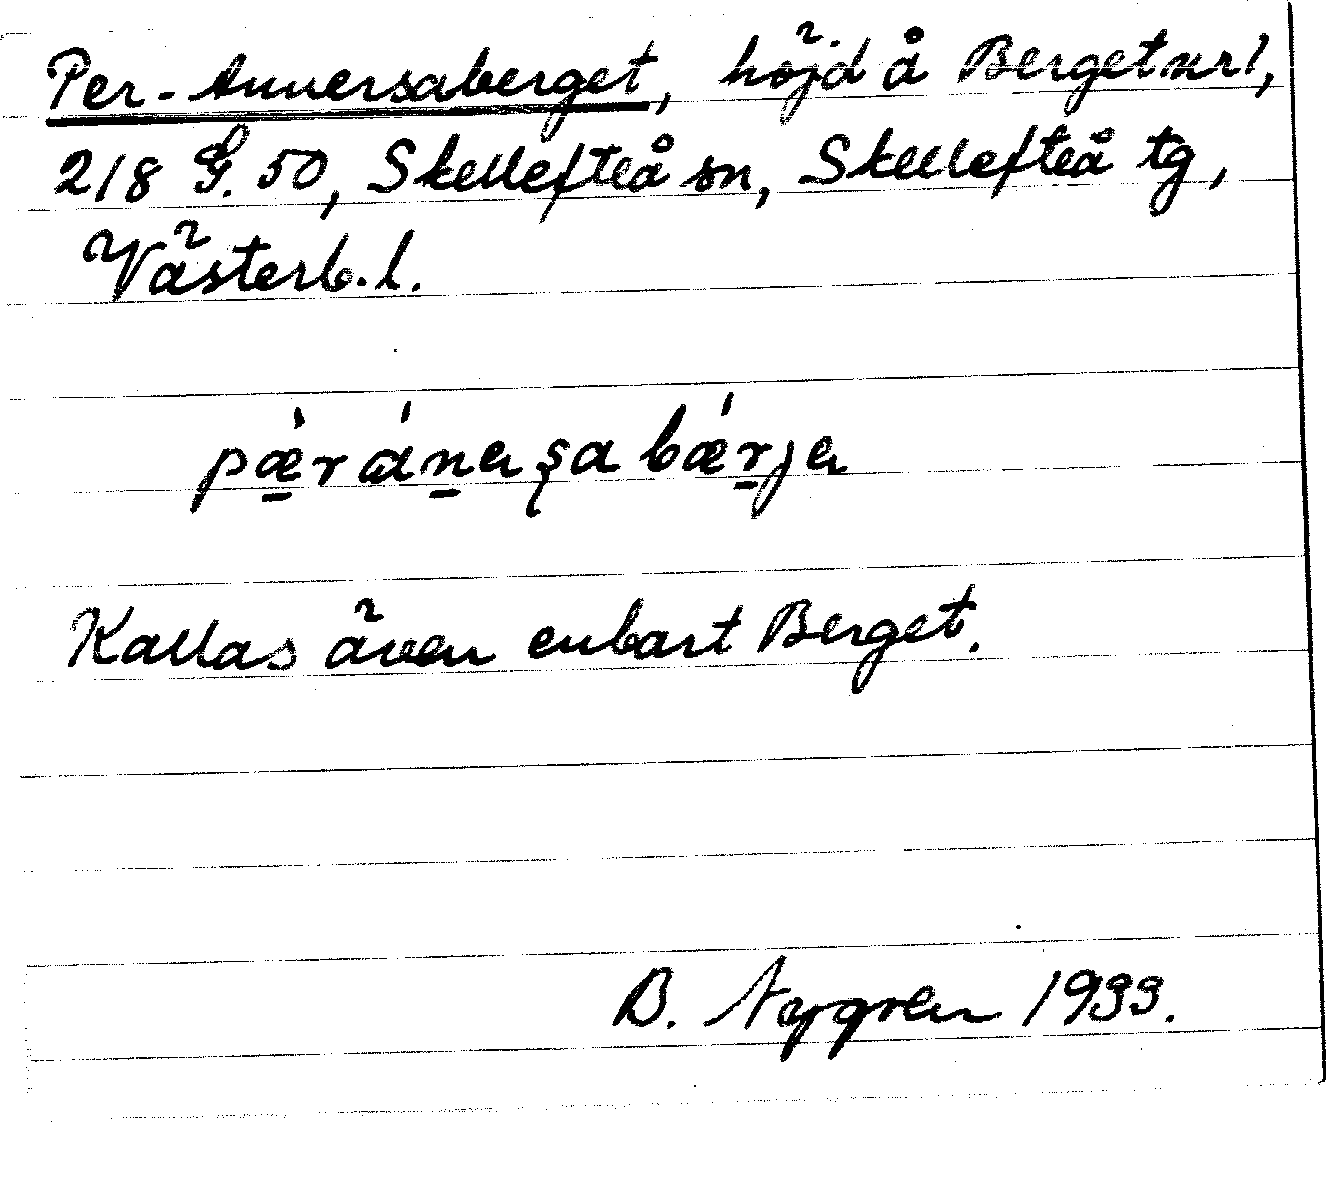 Per-Annersaberget, höjd å Berget nr 1,
218 G. 50, Skellefteå sn, Skellefteå tg,
Västerb. l.
pæ̀ránaşabǽrja
Kallas även enbart Berget.
B. Nygren 1933.